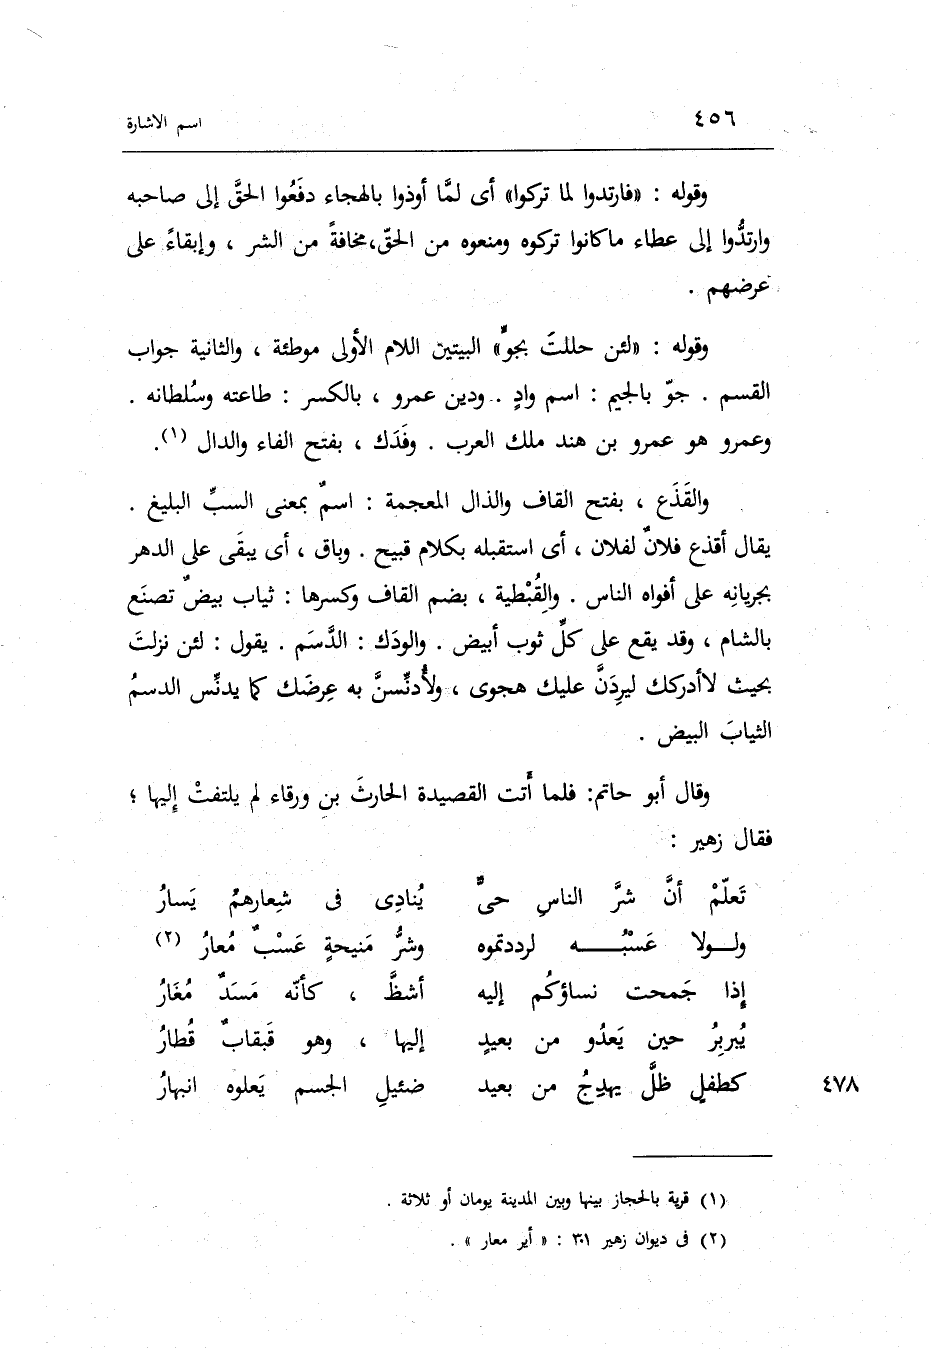 ٤٥٦ اسم الاشارة
وقوله : «فارتدوا لما تركوا» أى لمَّا أوذوا بالهجاء دفَعُوا الحقَّ إلى صاحبه
وارتدُّوا إلى عطاء ماكانوا تركوه ومنعوه من الحقّ،مخافةً من الشر ، وإبقاءً على
عرضهم .
وقوله : «لئن حللتَ بجوٍّ» البيتين اللام الأولى موطئة ، والثانية جواب
القسم . جوّ بالجيم : اسم وادٍ . ودين عمرو ، بالكسر : طاعته وسُلطانه .
وعمرو هو عمرو بن هند ملك العرب . وفَدَك ، بفتح الفاء والدال (١).
والقَذَع ، بفتح القاف والذال المعجمة : اسمٌ بمعنى السبِّ البليغ .
يقال أقذع فلانٌ لفلان ، أى استقبله بكلام قبيح . وباق ، أى يبقَى على الدهر
بجريانِه على أفواه الناس . والقُِبْطية ، بضم القاف وكسرها : ثياب بيضٌ تصنَع
بالشام ، وقد يقع على كلِّ ثوب أبيض . والودَك : الدَّسَم . يقول : لئن نزلتَ
بحيث لاأدركك ليرِدَنَّ عليك هجوى ، ولأُدنِّسنَّ به عِرضَك كما يدنِّس الدسمُ
الثيابَ البيض .
وقال أبو حاتم: فلما أَتت القصيدة الحارثَ بن ورقاء لم يلتفتْ إليها ؛
فقال زهير :
تَعلّمْ أنَّ شرَّ الناسِ حىٌّ يُنادِى فى شِعارهمُ يَسارُ
ولولا عَسْبُه لرددتموه وشرُّ مَنيحةٍ عَسْبٌ مُعارُ (٢)
إذا جَمحت نساؤكُم إليه أشظَّ ، كأنّه مَسَدٌ مُغَارُ
يُبربِرُ حين يَعدُو من بعيدٍ إليها ، وهو قَبقابٌ قُطارُ
٤٧٨ كطفلٍ ظلَّ يهدِجُ من بعيد ضئيلِ الجسم يَعلوه انبهارُ
(١) قرية بالحجاز بينها وبين المدينة يومان أو ثلاثة .
(٢) فى ديوان زهير ٣٠١ : « أير معار » .